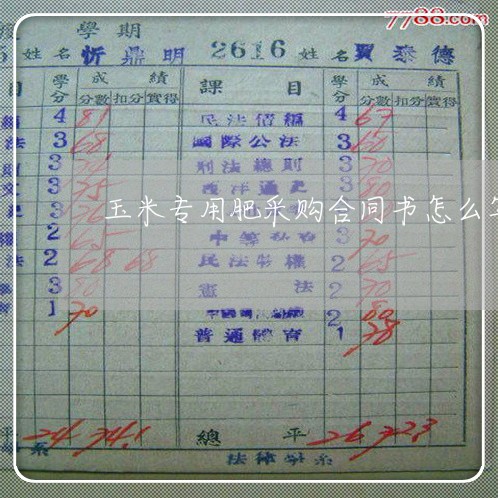 7788.com
學期
姓名 忻鼎明 2616 姓名 賈泰德
目 學分 成績 課目 學分 成績
分數 扣分 實得 分數 扣分 實得
4 81 民法債編 4 67
法 3 68 國際公法 3 60
3 刑法總則 3 70
3 75 西洋通史 3 80
3
玉米专用肥采购合同书怎么
2 65 3 70
法 2 68 68 民法物權 2 65
3 80 憲法 2 70
1 70 2 80
普通體育 1 78
平 24 74.1 總平 26 72.3
系 法律學系